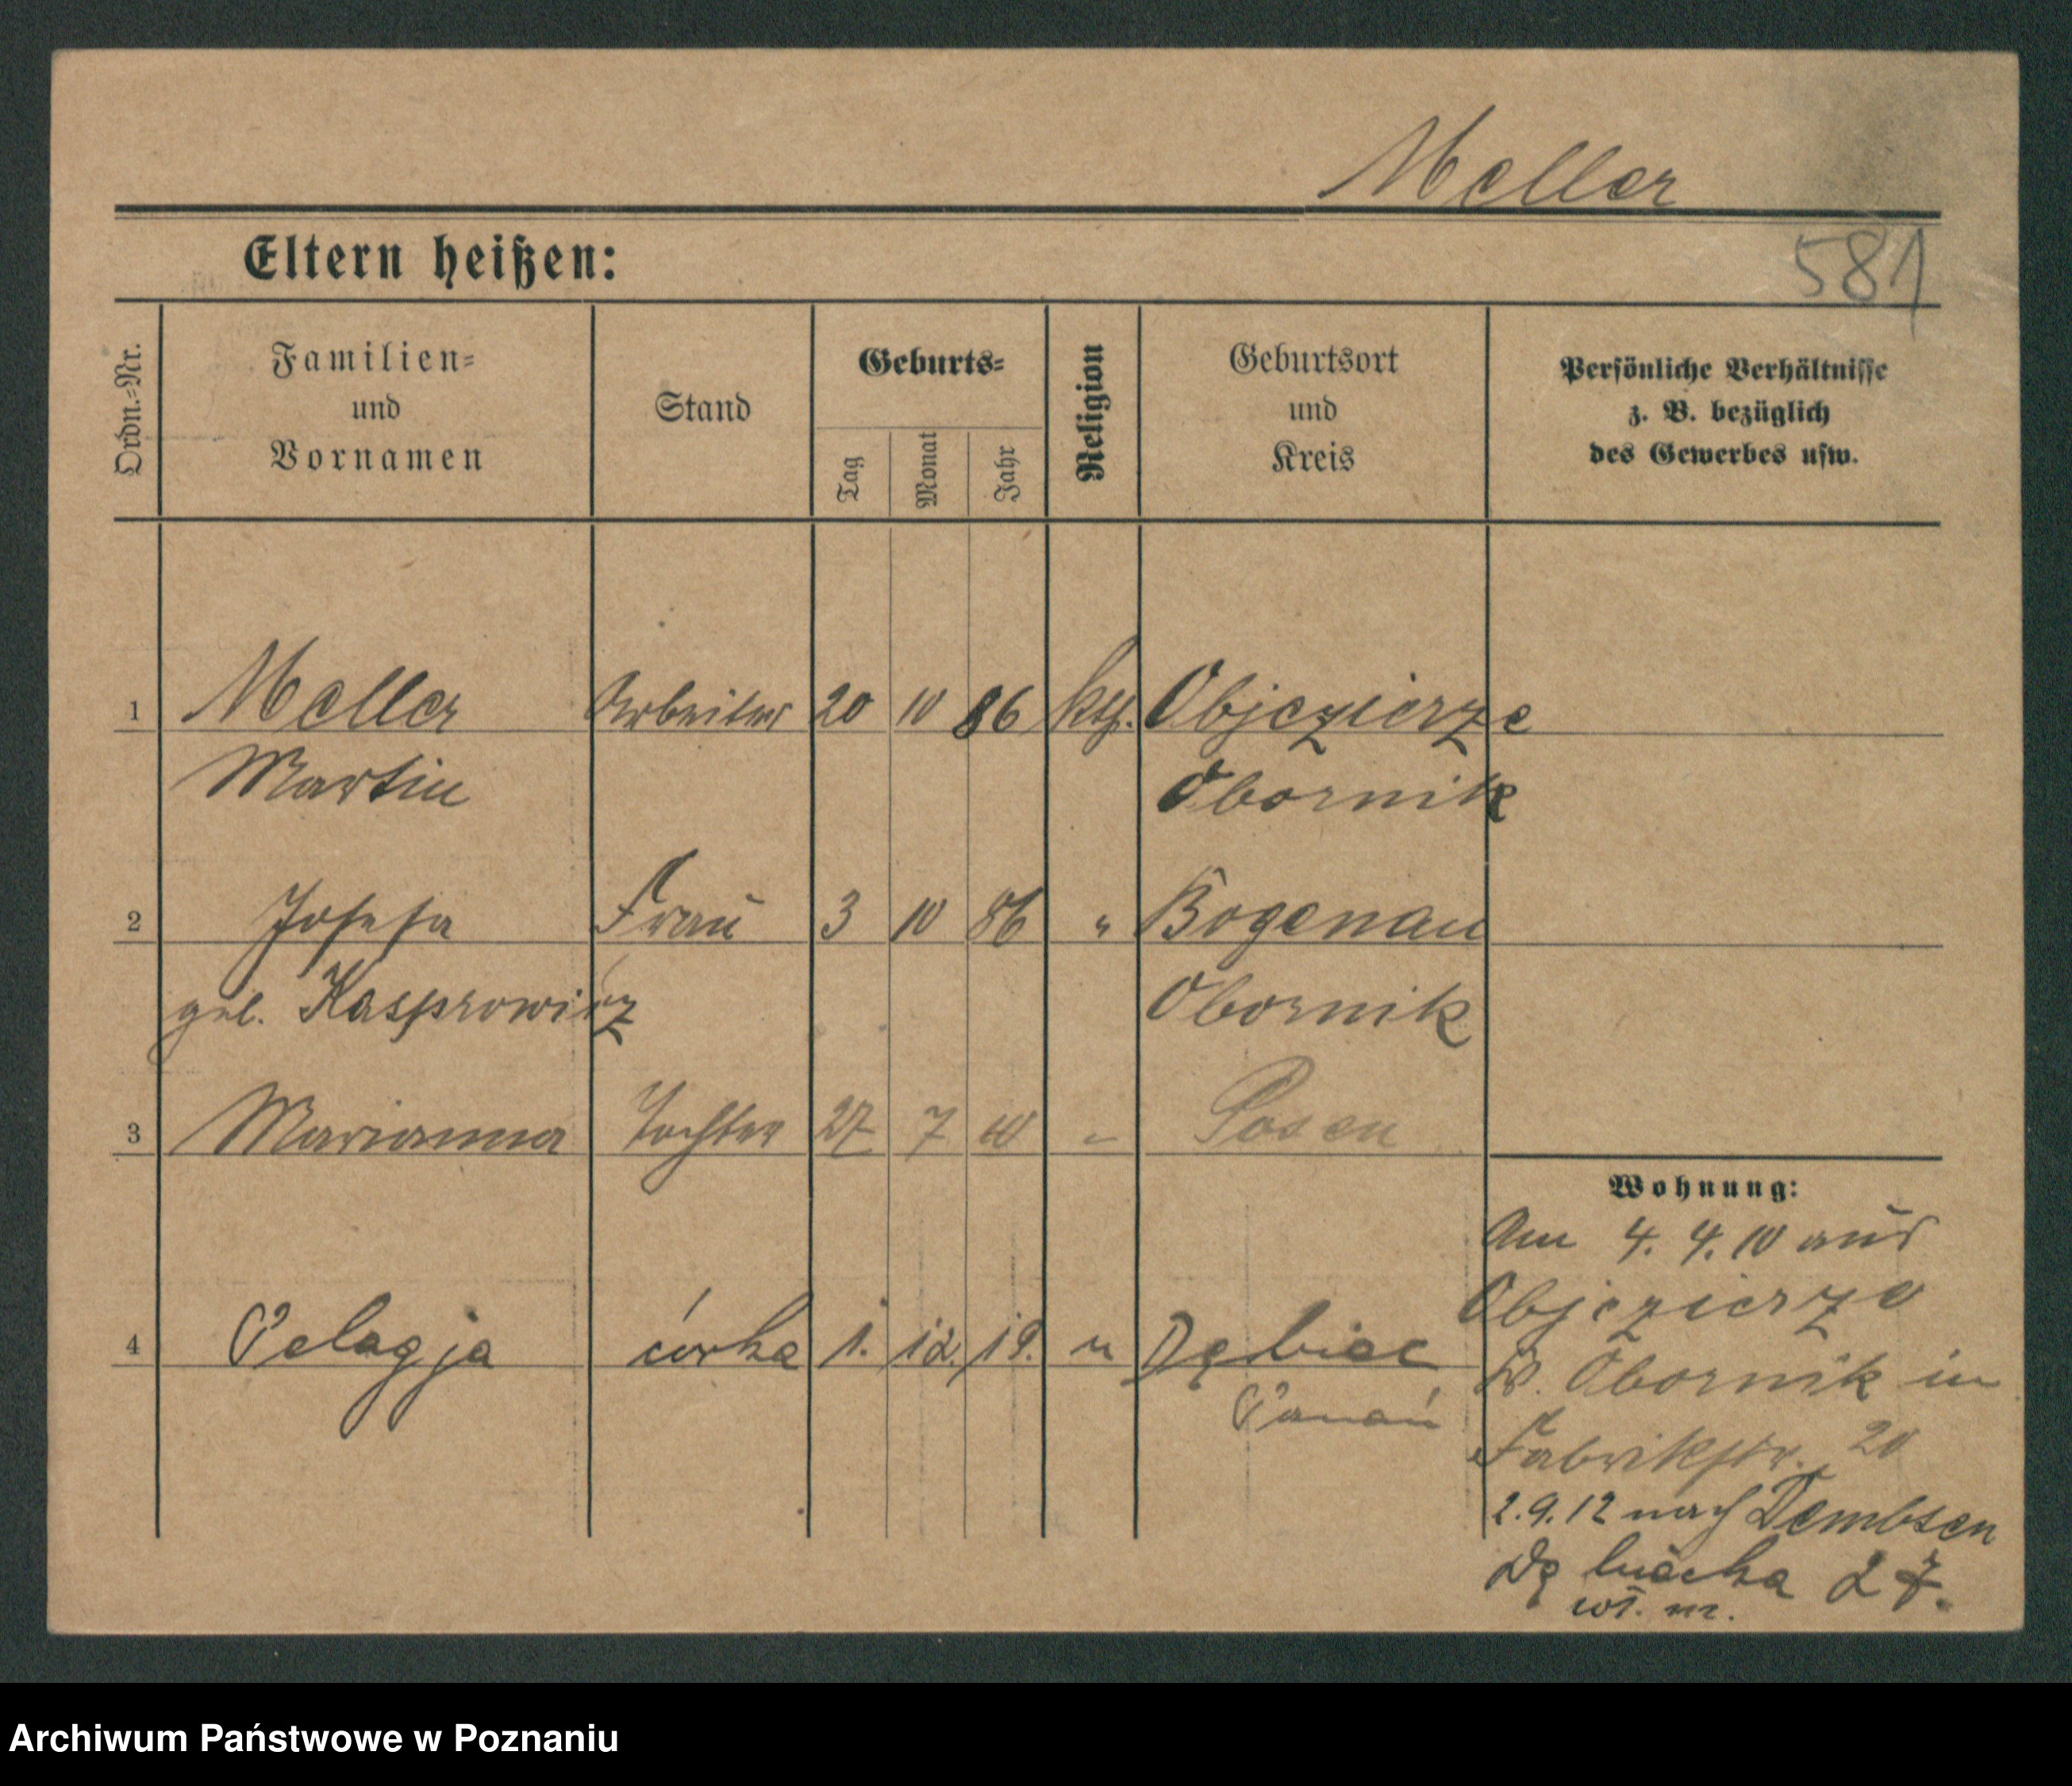 Meller
Eltern heißen:
581
Ordn.-Nr.
Familien-
und
Vornamen
Stand
Geburts-
Tag
Monat
Jahr
Religion
Geburtsort
und
Kreis
Persönliche Verhältnisse
z. B. bezüglich
des Gewerbes usw.
1 Meller Arbeiter 20 10 86 kth. Objezierze
Martin Obornik
2 Josefa Frau 3 10 86 " Bogenau
geb. Kasprowicz Obornik
3 Marianna Tochter 27 7 10 " Posen
Wohnung:
Am 4. 4. 10 aus
Objezierze
4 Pelagja córka 1. 12. 19. " Dębiec
Kr. Obornik in
Poznań
Fabrikstr. 20
2.9.12 nach Dembsen
Dębiecka 27.
wł. m.
Archiwum Państwowe w Poznaniu